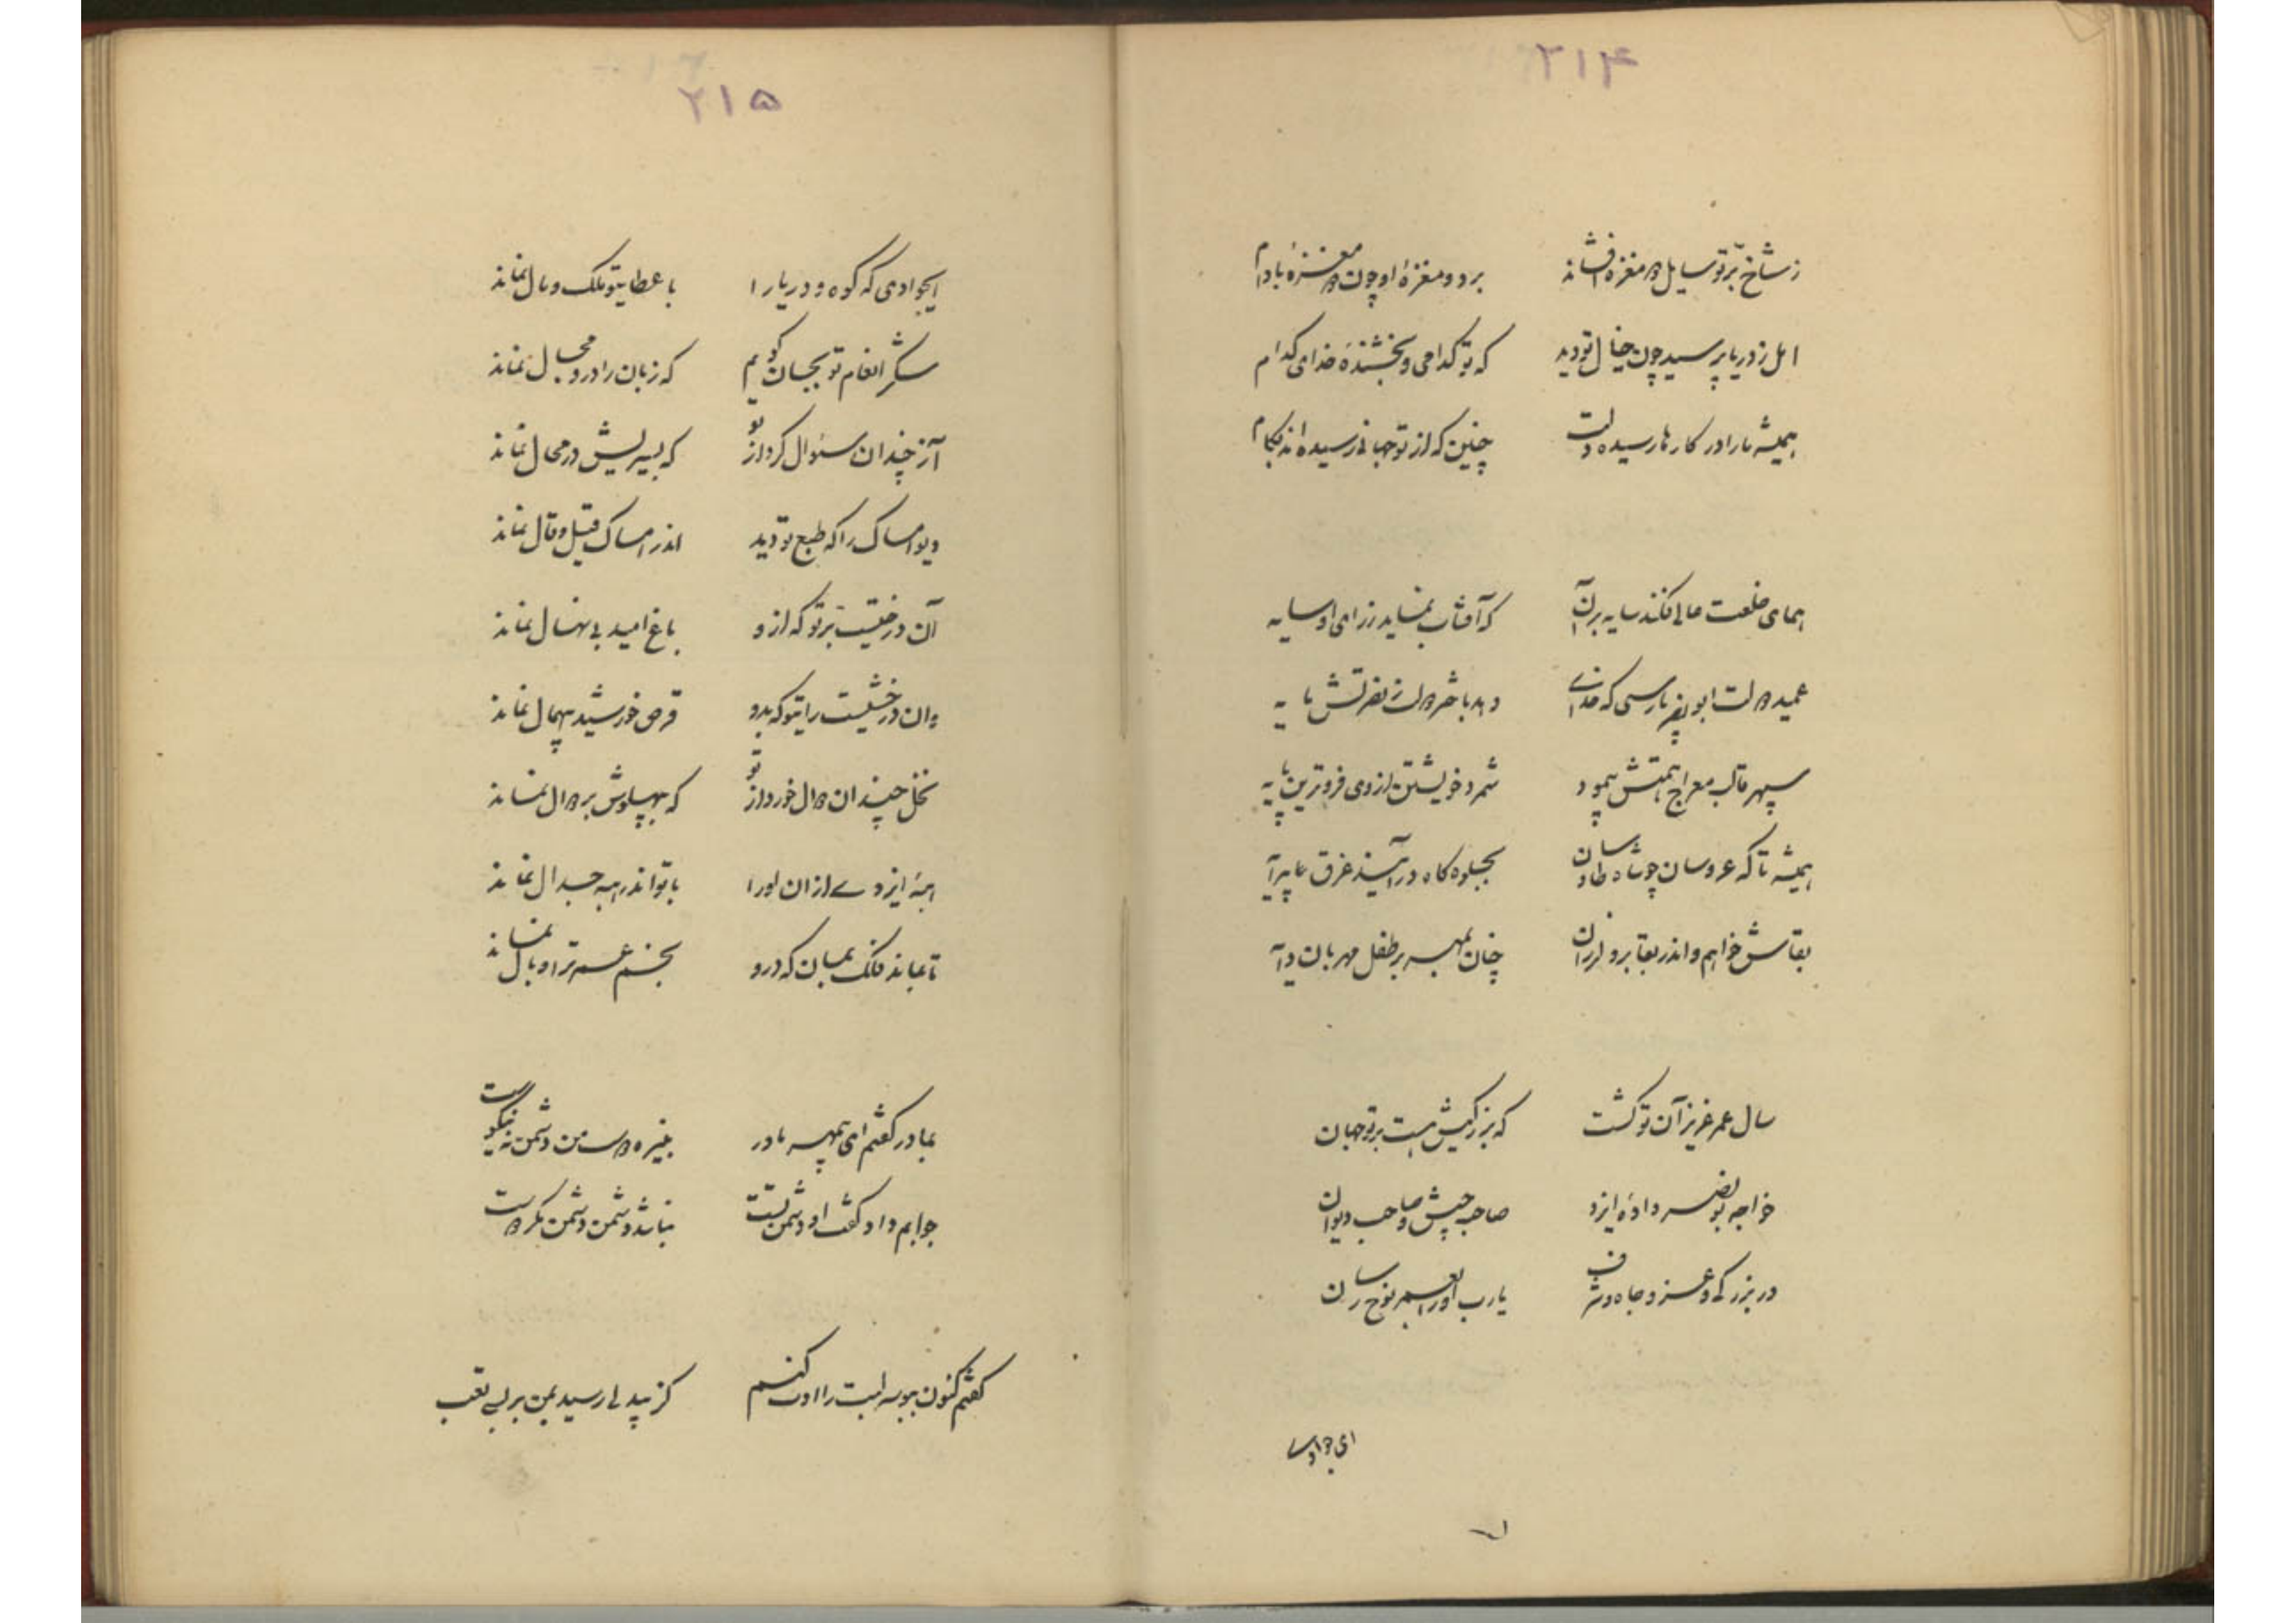 ۲۱۴
ز شاخ برّ تو سایل دو مغزه افشاند برد دو مغزهٔ او چون دو مغزهٔ بادام
امل ز دریا پرسید چون خیال تو دید که تو کدامی و بخشندهٔ خدای کدام
همیشه ما را در کارها رسیده دلت چنین که از تو جهانی رسیده‌اند بکام
همای خلعت عالی فکند سایه بر آن که آفتاب نماید ز رای او سایه
عمید دولت ابو نصر پارسی که خدای دهد بشر دولت ز نصرتش مایه
سپهر قالب معراج همتش پیمود شمرد خویشتن از وی فروترین پایه
همیشه تا که عروسان چو شاه طاوسان بجلوه گاه در آیند غرق پیرایه
بقاش خواهم و اندر بقا برو لرزان چنان بمهر بر طفل مهربان دایه
سال عمر عزیز آن تو گشت که بزرگیش هست بر تو جهان
خواجه بو نصر دادهٔ ایزد صاحب جیش و صاحب دیوان
در بزرگی و عز و جاه و شرف یا رب او را بعمر نوح رسان
ای جوادی
۲۱۵
ایجوادی که کوه و دریا را با عطای تو ملک و مال نماند
شکر انعام تو بجان گویم که زبان را درو مجال نماند
آز چندان سئوال کرد از تو که بسیریش در محال نماند
دیو امساک را که طبع تو دید اندر امساک قیل و قال نماند
آن درختیست برّ تو که ازو باغ امید بی نهال نماند
وان درخشیست رای تو که بدو قرص خورشید بیهمال نماند
بخل چندان دوال خورد از تو که به پهلوش بر دوال نماند
همهٔ ایزدی از ان او را با تو اندر همه جدال نماند
تا بماند فلک بمان که درو بخشم عمر ترا وبال نماند
بمادر گفتم ای بیمهر مادر بنیره دوست من دشمن نه نیکوست
جوابم داد و گفت او دشمن تست نباشد دشمن دشمن مگر دوست
گفتم کنون ببوسه لبت را ادب کنم کز بیدلی رسید بمن بر بسی تعب